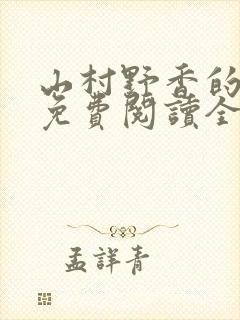 山村野香的
免費閱讀全
孟詳青